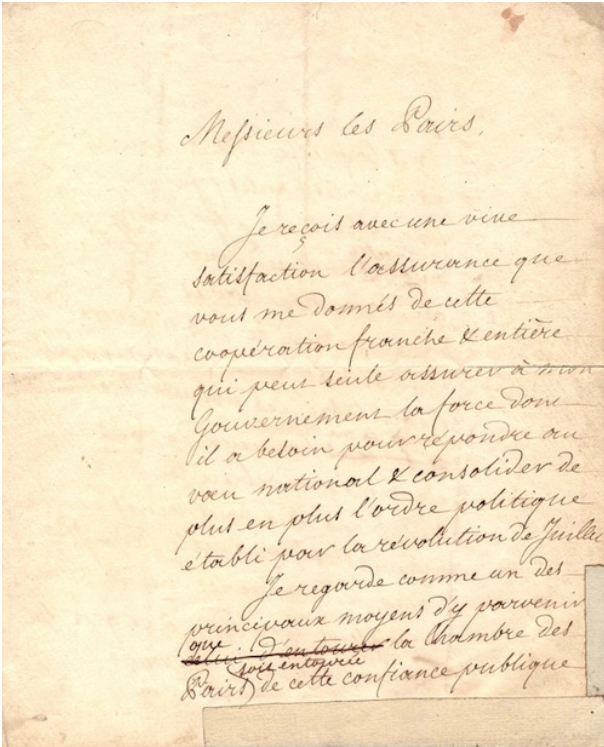 Messieurs les Pairs,
Je reçois avec une vive
satisfaction l'assurance que
vous me donnés de cette
coopération franche & entière
qui peut seule assurer à mon
Gouvernement la force dont
il a besoin pour répondre au
vœu national & consolider de
plus en plus l'ordre politique
établi par la révolution de Juillet
Je regarde comme un des
principaux moyens d'y parvenir
que
celui d'entourer la Chambre des
soit entourée
Pairs de cette confiance publique